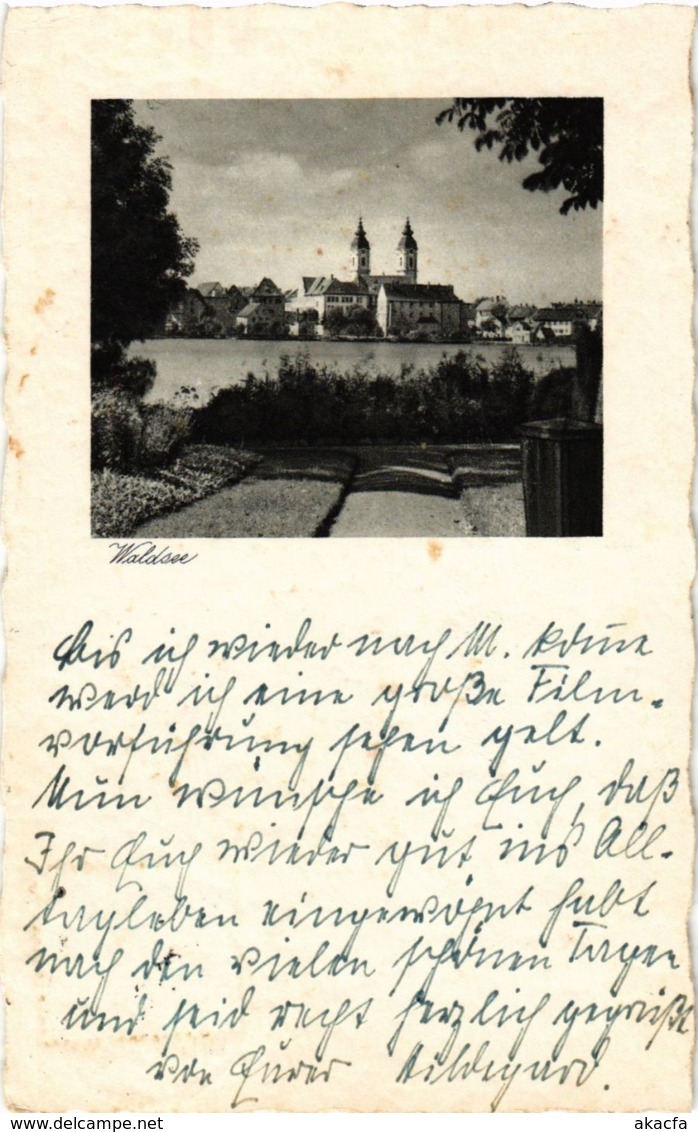 Waldsee
Bis ich wieder nach M. komme
werd ich eine große Film-
vorführung sehen gelt.
Nun wünsche ich Euch, daß
Ihr Euch wieder gut ins All-
tagleben eingewöhnt habt
nach den vielen schönen Tagen
und seid recht herzlich gegrüßt
von Eurer Hildegard.
akpool.de
akacfa